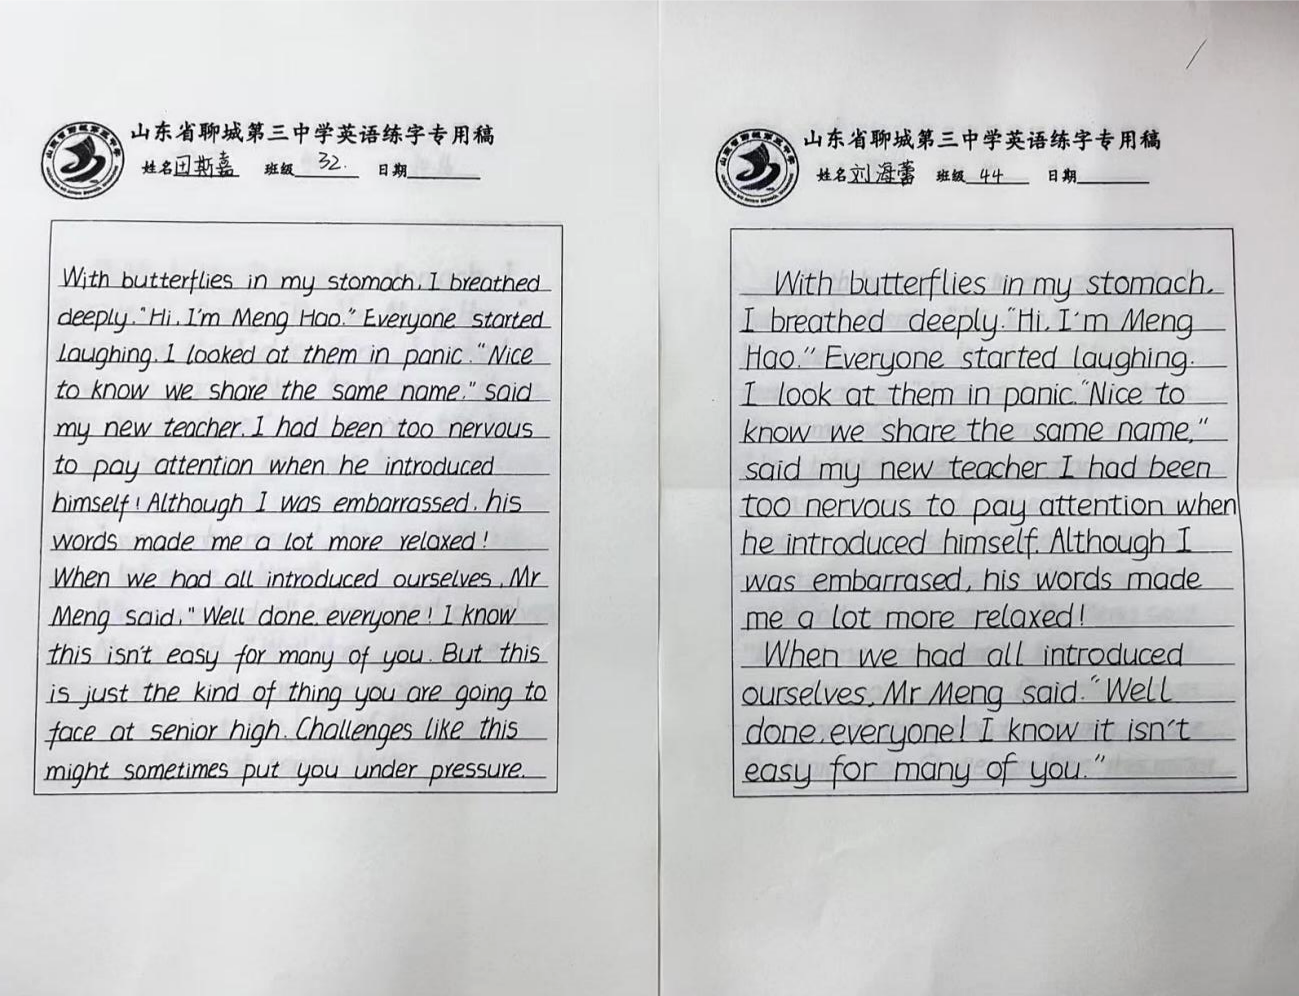 山东省聊城第三中学英语练字专用稿
姓名田斯嘉 班级 32. 日期
With butterflies in my stomach, I breathed
deeply. "Hi, I'm Meng Hao." Everyone started
laughing. I looked at them in panic. "Nice
to know we share the same name." said
my new teacher. I had been too nervous
to pay attention when he introduced
himself! Although I was embarrassed, his
words made me a lot more relaxed!
When we had all introduced ourselves, Mr
Meng said, "Well done, everyone! I know
this isn't easy for many of you. But this
is just the kind of thing you are going to
face at senior high. Challenges like this
might sometimes put you under pressure.
山东省聊城第三中学英语练字专用稿
姓名刘海蕾 班级 44 日期
With butterflies in my stomach,
I breathed deeply. "Hi, I'm Meng
Hao." Everyone started laughing.
I look at them in panic. "Nice to
know we share the same name,"
said my new teacher I had been
too nervous to pay attention when
he introduced himself. Although I
was embarrased, his words made
me a lot more relaxed!
When we had all introduced
ourselves, Mr Meng said. "Well
done, everyone! I know it isn't
easy for many of you."